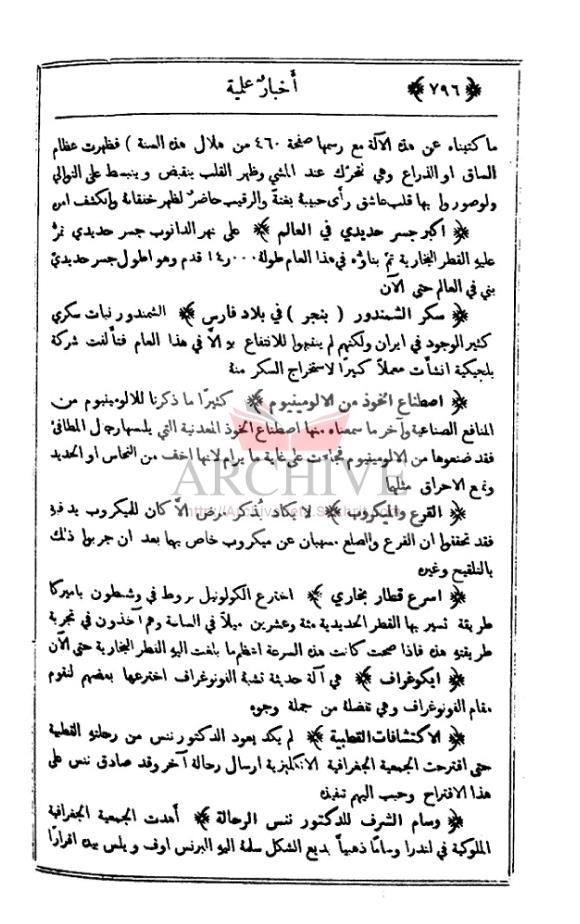 ﴿ ٧٩٦ ﴾ أخبار علمية
ما كتبناه عن هذه الآلة مع رسمها صفحة ٤٦٠ من هلال هذه السنة ) فظهرت عظام
الساق او الذراع وهي تتحرَّك عند المشي وظهر القلب ينقبض وينبسط على التوالي
ولو صوروا بها قلب عاشق رأى حبيبهُ بغتةً والرقيب حاضرٌ لظهر خفقانهُ وانكشف امرهُ
﴿ اكبر جسر حديدي في العالم ﴾ على نهر الدانوب جسر حديدي تمرُّ
عليهِ القطر البخارية تمَّ بناؤهُ في هذا العام طولهُ ١٤٫٠٠٠ قدم وهو اطول جسر حديديّ
بني في العالم حتى الآن
﴿ سكر الشمندور ( بنجر ) في بلاد فارس ﴾ الشمندور نبات سكري
كثير الوجود في ايران ولكنهم لم ينتبهوا للانتفاع بهِ الاَّ في هذا العام فتألفت شركة
بلجيكية انشأت معملاً كبيرًا لاستخراج السكر منهُ
﴿ اصطناع الخوذ من الالومينيوم ﴾ كثيرًا ما ذكرنا للالومينيوم من
المنافع الصناعية وآخر ما سمعناه منها اصطناع الخوذ المعدنية التي يلبسها رجال المطافئ
فقد صنعوها من الالومينيوم فجاءت على غاية ما يرام لانها اخف من النحاس او الحديد
وتمنع الاحراق مثلها
﴿ القرع والميكروب ﴾ لا يكاد يُذكر مرض الاَّ كان للميكروب يد فيهِ
فقد تحققوا ان القرع والصلع مسببان عن ميكروب خاص بها بعد ان جربوا ذلك
بالتلقيح وغيرهِ
﴿ اسرع قطار بخاري ﴾ اخترع الكولونيل بروط في وشنطون باميركا
طريقة تسير بها القطر الحديدية مئة وعشرين ميلاً في الساعة وهم آخذون في تجربة
طريقتهِ هذه فاذا صحت كانت هذه السرعة اعظم ما بلغت اليهِ القطر البخارية حتى الآن
﴿ ايكوغراف ﴾ هي آلة حديثة تشبه الفونوغراف اخترعها بعضهم لتقوم
مقام الفونوغراف وهي تفضلهُ من جملة وجوه
﴿ الاكتشافات القطبية ﴾ لم يكد يعود الدكتور ننس من رحلتهِ القطبية
حتى اقترحت الجمعية الجغرافية الانكليزية ارسال رحالة آخر وقد صادق ننس على
هذا الاقتراح وحبب اليهم تنفيذهُ
﴿ وسام الشرف للدكتور ننس الرحالة ﴾ أهدت الجمعية الجغرافية
الملوكية في لندرا وسامًا ذهبياً بديع الشكل سلمهُ اليهِ البرنس اوف ويلس بيدهِ اقرارًا
ARCHIVE